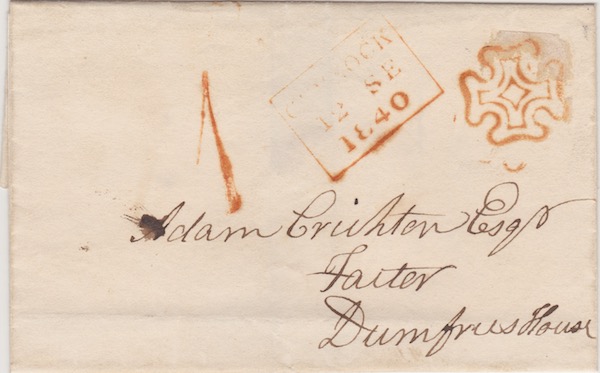 1
CUMNOCK
12 SE
1840
Adam Crichton Esqr
Factor
Dumfries House